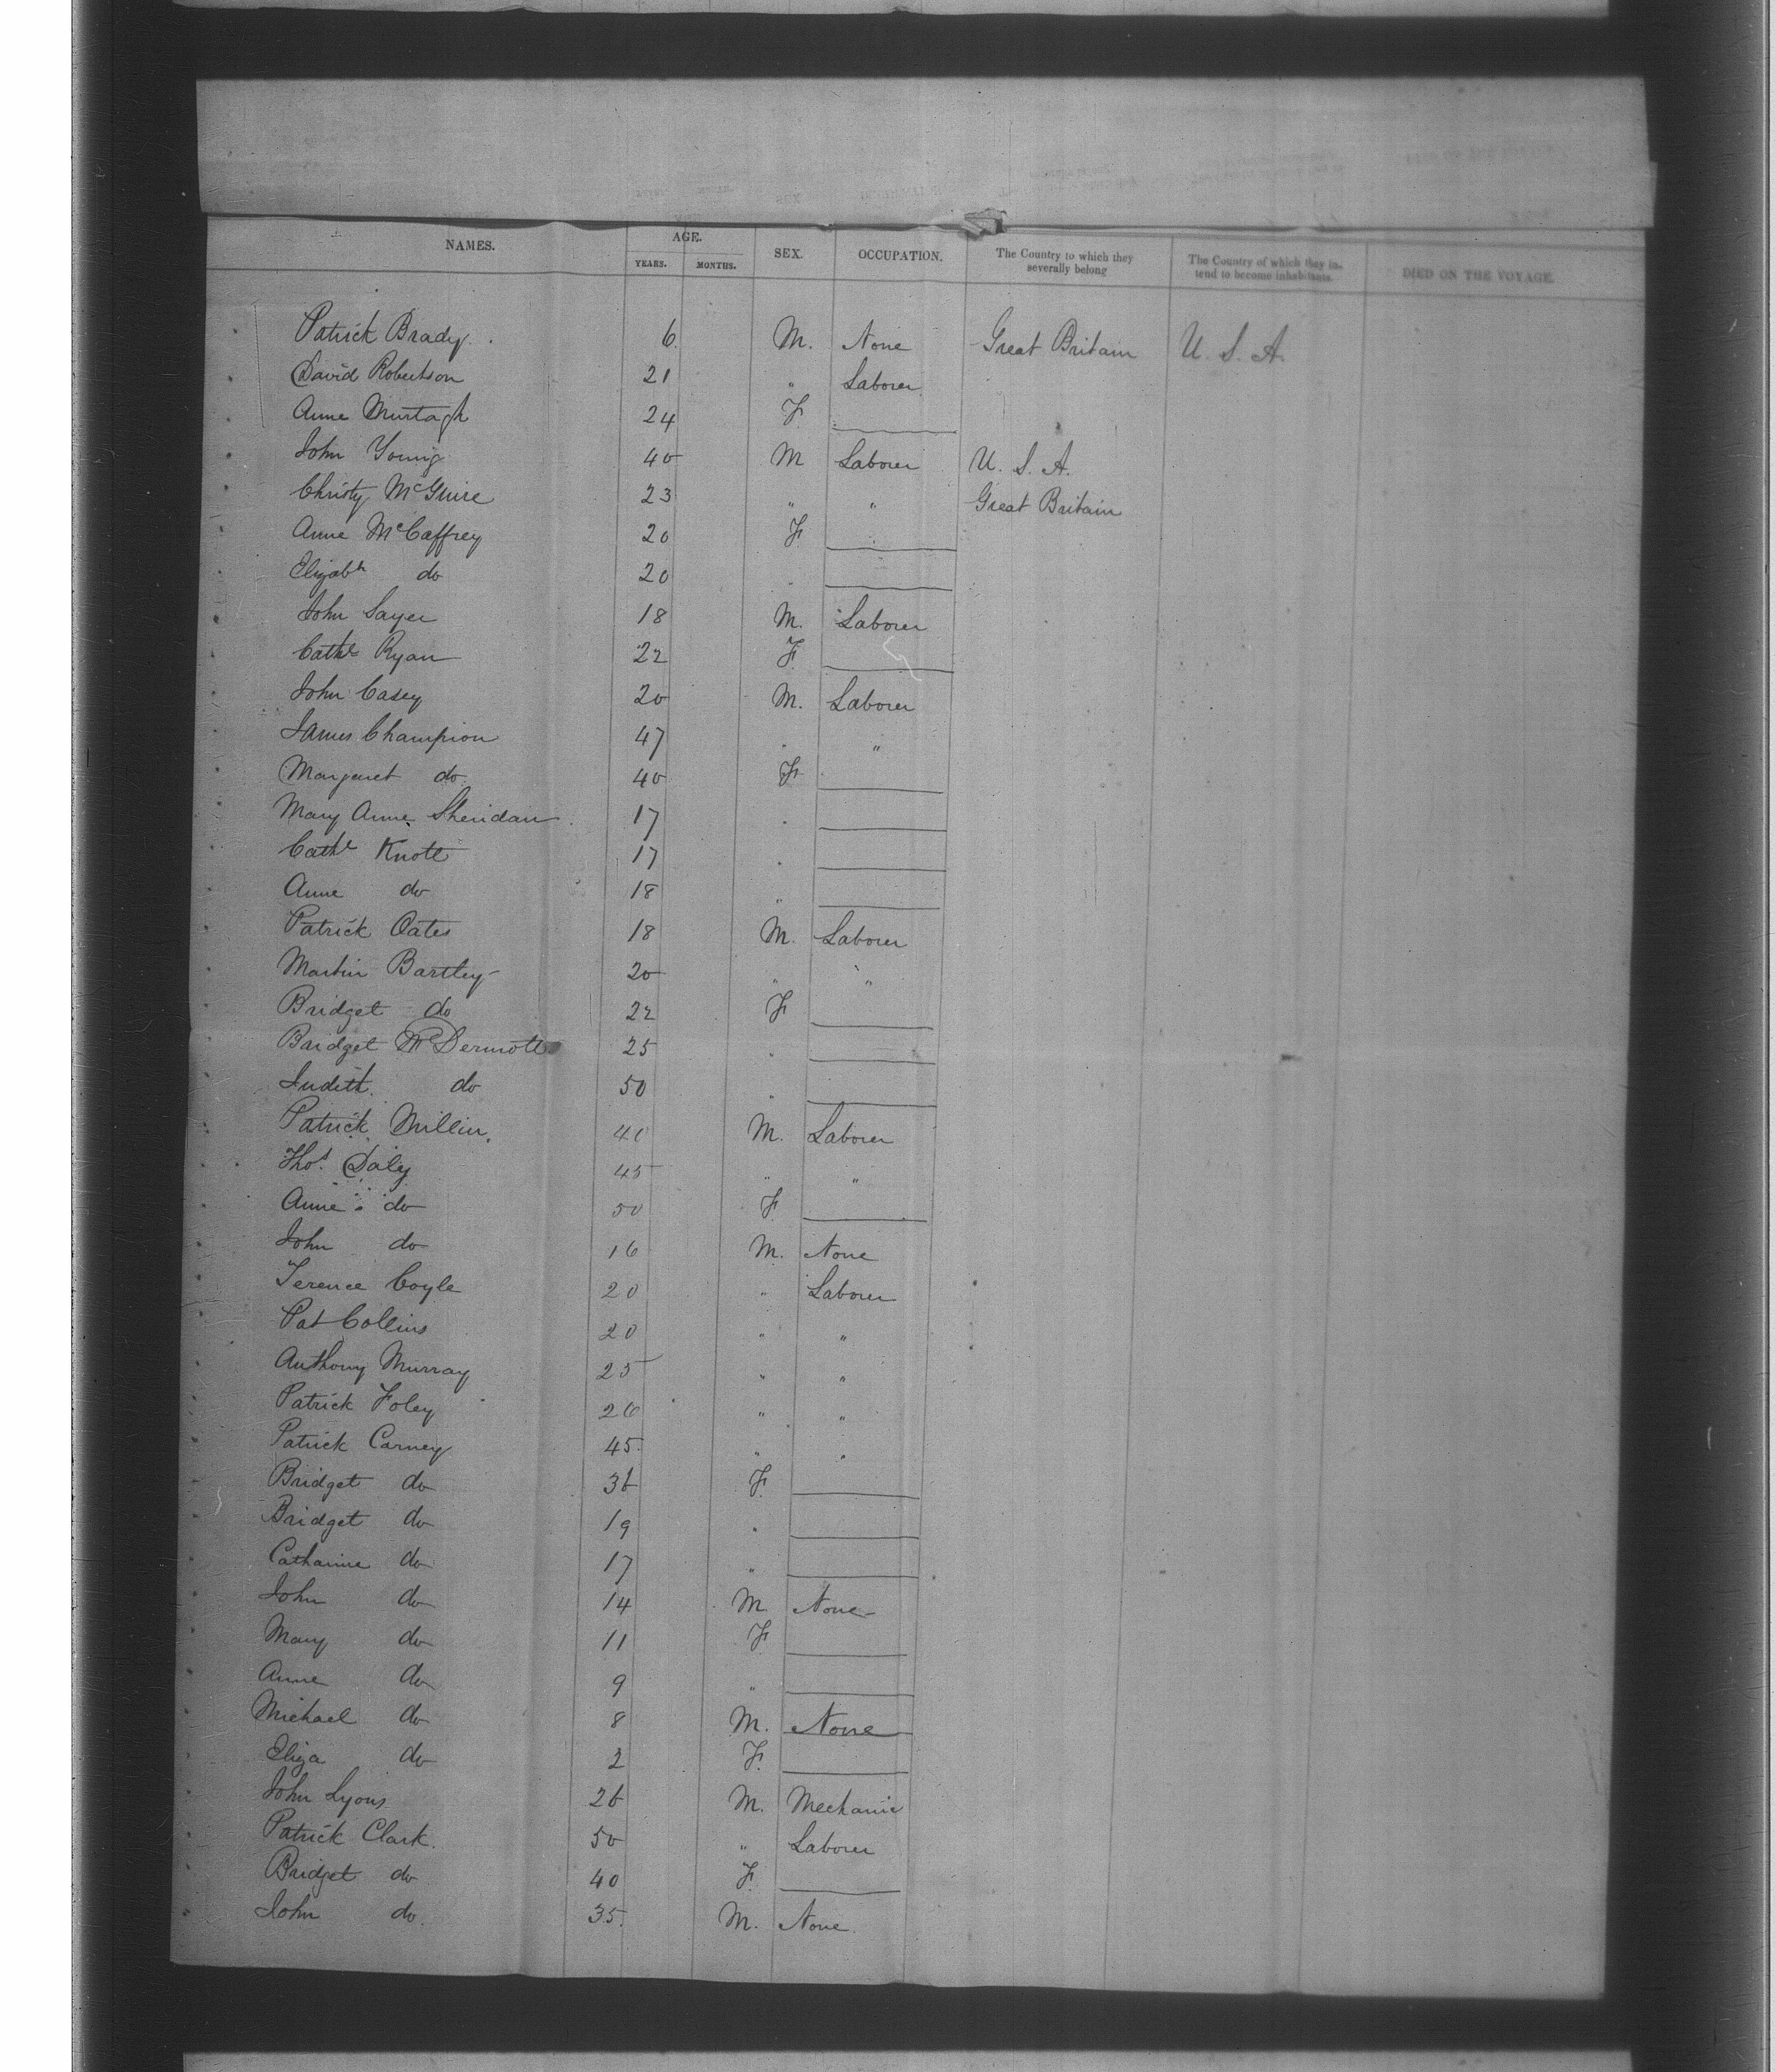 NAMES. AGE. YEARS. MONTHS. SEX. OCCUPATION. The Country to which they severally belong The Country of which they intend to become inhabitants. DIED ON THE VOYAGE.
Patrick Brady 6 M. None Great Britain U. S. A.
David Robertson 21 " Laborer
Anne Murtagh 24 F.
John Young 40 M Laborer U. S. A.
Christy McGuire 23 " " Great Britain
Anne McCaffrey 20 F.
Elizabh do 20 "
John Sayer 18 M. Laborer
Cathe Ryan 22 F.
John Casey 20 M. Laborer
James Champion 47 " "
Margaret do. 40 F.
Mary Anne Sheridan 17 "
Cathe Knott 17 "
Anne do 18 "
Patrick Oates 18 M. Laborer
Martin Bartley 20 " "
Bridget do 22 F
Bridget McDermott 25 "
Judith do 50 "
Patrick Millin 40 M. Laborer
Thos. Daly 45 " "
Anne do 50 F.
John do 16 M. None
Terence Coyle 20 " Laborer
Pat Collins 20 " "
Anthony Murray 25 " "
Patrick Foley 26 " "
Patrick Carney 45 " "
Bridget do 36 F.
Bridget do 19 "
Catharine do 17 "
John do 14 M None
Mary do 11 F
Anne do 9 "
Michael do 8 M. None
Eliza do 2 F.
John Lyons 26 M. Mechanic
Patrick Clark. 50 " Laborer
Bridget do 40 F.
John do. 35. M. None.